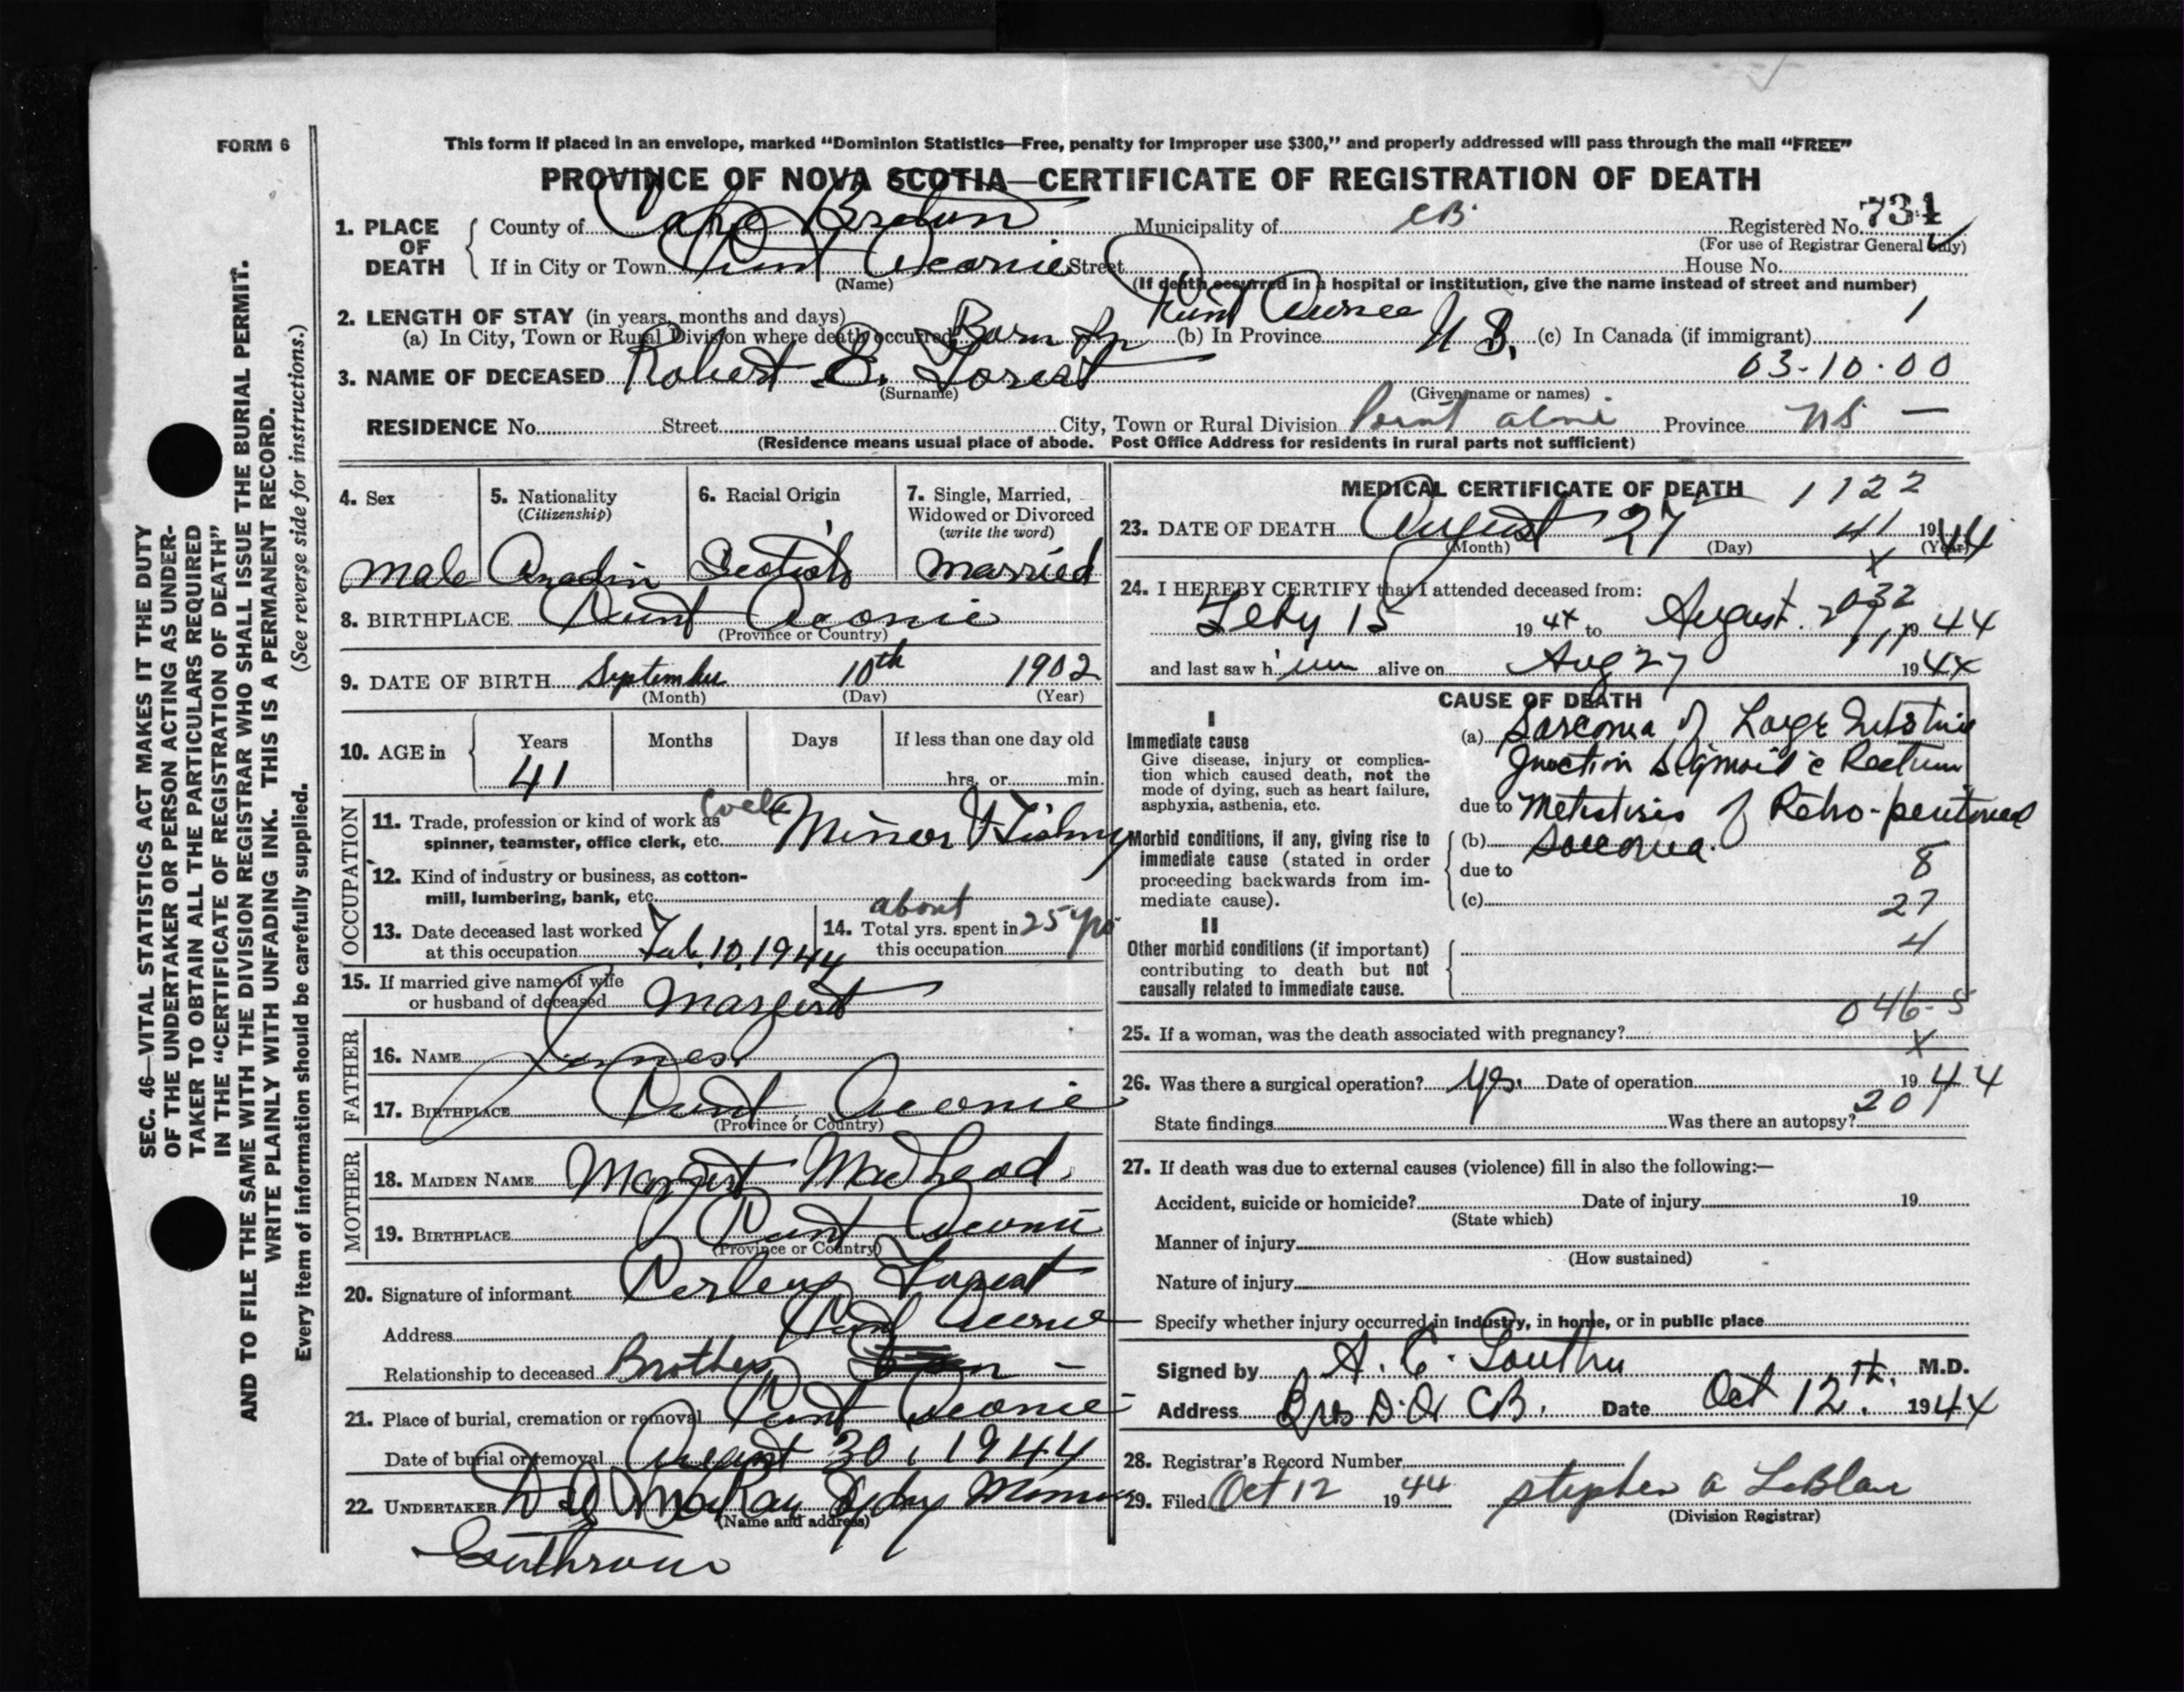 FORM 6
This form if placed in an envelope, marked "Dominion Statistics—Free, penalty for improper use $300," and properly addressed will pass through the mail "FREE"
PROVINCE OF NOVA SCOTIA—CERTIFICATE OF REGISTRATION OF DEATH
1. PLACE OF DEATH
County of Cape Breton Municipality of CB Registered No. 731
(For use of Registrar General only)
If in City or Town Point Aconie Street House No.
(Name) (If death occurred in a hospital or institution, give the name instead of street and number)
2. LENGTH OF STAY (in years, months and days) Point 1
(a) In City, Town or Rural Division where death occurred Born In (b) In Province (c) In Canada (if immigrant)
03-10-00
3. NAME OF DECEASED Robert E. Forest
(Surname) (Given name or names)
RESIDENCE No. Street City, Town or Rural Division Point Province NS —
(Residence means usual place of abode. Post Office Address for residents in rural parts not sufficient)
4. Sex
male
5. Nationality
(Citizenship)
Canadin
6. Racial Origin
7. Single, Married, Widowed or Divorced
(write the word)
married
8. BIRTHPLACE Point Aconie
(Province or Country)
9. DATE OF BIRTH September 10th 1902
(Month) (Day) (Year)
10. AGE in
Years Months Days If less than one day old
41 hrs. or min.
OCCUPATION
11. Trade, profession or kind of work as
spinner, teamster, office clerk, etc. Minor
12. Kind of industry or business, as cotton-
mill, lumbering, bank, etc.
13. Date deceased last worked
at this occupation Feb. 10, 1944
14. Total yrs. spent in
this occupation about 25 yrs
15. If married give name of wife
or husband of deceased Margert
FATHER
16. NAME James
17. BIRTHPLACE Point Aconie
(Province or Country)
MOTHER
18. MAIDEN NAME Margert
19. BIRTHPLACE Point Aconie
(Province or Country)
20. Signature of informant Perley Forest
Address Point Aconie
Relationship to deceased Brother
21. Place of burial, cremation or removal Point Aconie
Date of burial or removal August 30, 1944
22. UNDERTAKER MacKay Sydney Mines
(Name and address)
MEDICAL CERTIFICATE OF DEATH 1122
23. DATE OF DEATH August 27 41 1944
(Month) (Day) (Year)
24. I HEREBY CERTIFY that I attended deceased from:
Feby 15 1944 to August 27 1944
032
and last saw h im alive on Aug 27 1944
CAUSE OF DEATH
I
Immediate cause
Give disease, injury or complica-
tion which caused death, not the
mode of dying, such as heart failure,
asphyxia, asthenia, etc.
(a) Sarcoma of Large Intestine
Junction Sigmoid c Rectum
due to Metastisis of Retro-peritoneal
Morbid conditions, if any, giving rise to
immediate cause (stated in order
proceeding backwards from im-
mediate cause).
(b) Sarcoma.
due to 8
(c) 27
II
Other morbid conditions (if important)
contributing to death but not
causally related to immediate cause.
4
046-5
25. If a woman, was the death associated with pregnancy? x
26. Was there a surgical operation? Yes. Date of operation 1944
State findings Was there an autopsy? 201
27. If death was due to external causes (violence) fill in also the following:—
Accident, suicide or homicide? Date of injury 19
(State which)
Manner of injury
(How sustained)
Nature of injury
Specify whether injury occurred in industry, in home, or in public place
Signed by M.D.
Address Date Oct 12th. 1944
28. Registrar's Record Number
29. Filed Oct 12 1944 Stephen A LeBlanc
(Division Registrar)
SEC. 46—VITAL STATISTICS ACT MAKES IT THE DUTY
OF THE UNDERTAKER OR PERSON ACTING AS UNDER-
TAKER TO OBTAIN ALL THE PARTICULARS REQUIRED
IN THE "CERTIFICATE OF REGISTRATION OF DEATH"
AND TO FILE THE SAME WITH THE DIVISION REGISTRAR WHO SHALL ISSUE THE BURIAL PERMIT.
WRITE PLAINLY WITH UNFADING INK. THIS IS A PERMANENT RECORD.
Every item of information should be carefully supplied. (See reverse side for instructions.)